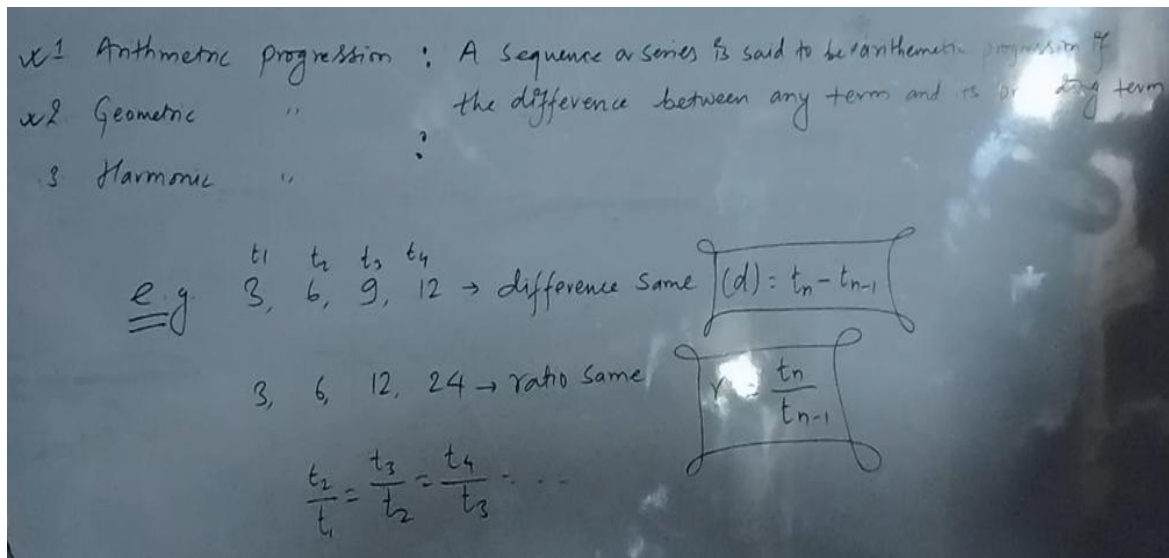 x1 Arithmetic progression : A sequence or series is said to be arithemetic progression if
the difference between any term and its term
x2 Geometric " :
3 Harmonic "
t1 t2 t3 t4
e.g. 3, 6, 9, 12 → difference same (d) = tn - tn-1
3, 6, 12, 24 → ratio same r = tn/tn-1
t2/t1 = t3/t2 = t4/t3 - - -